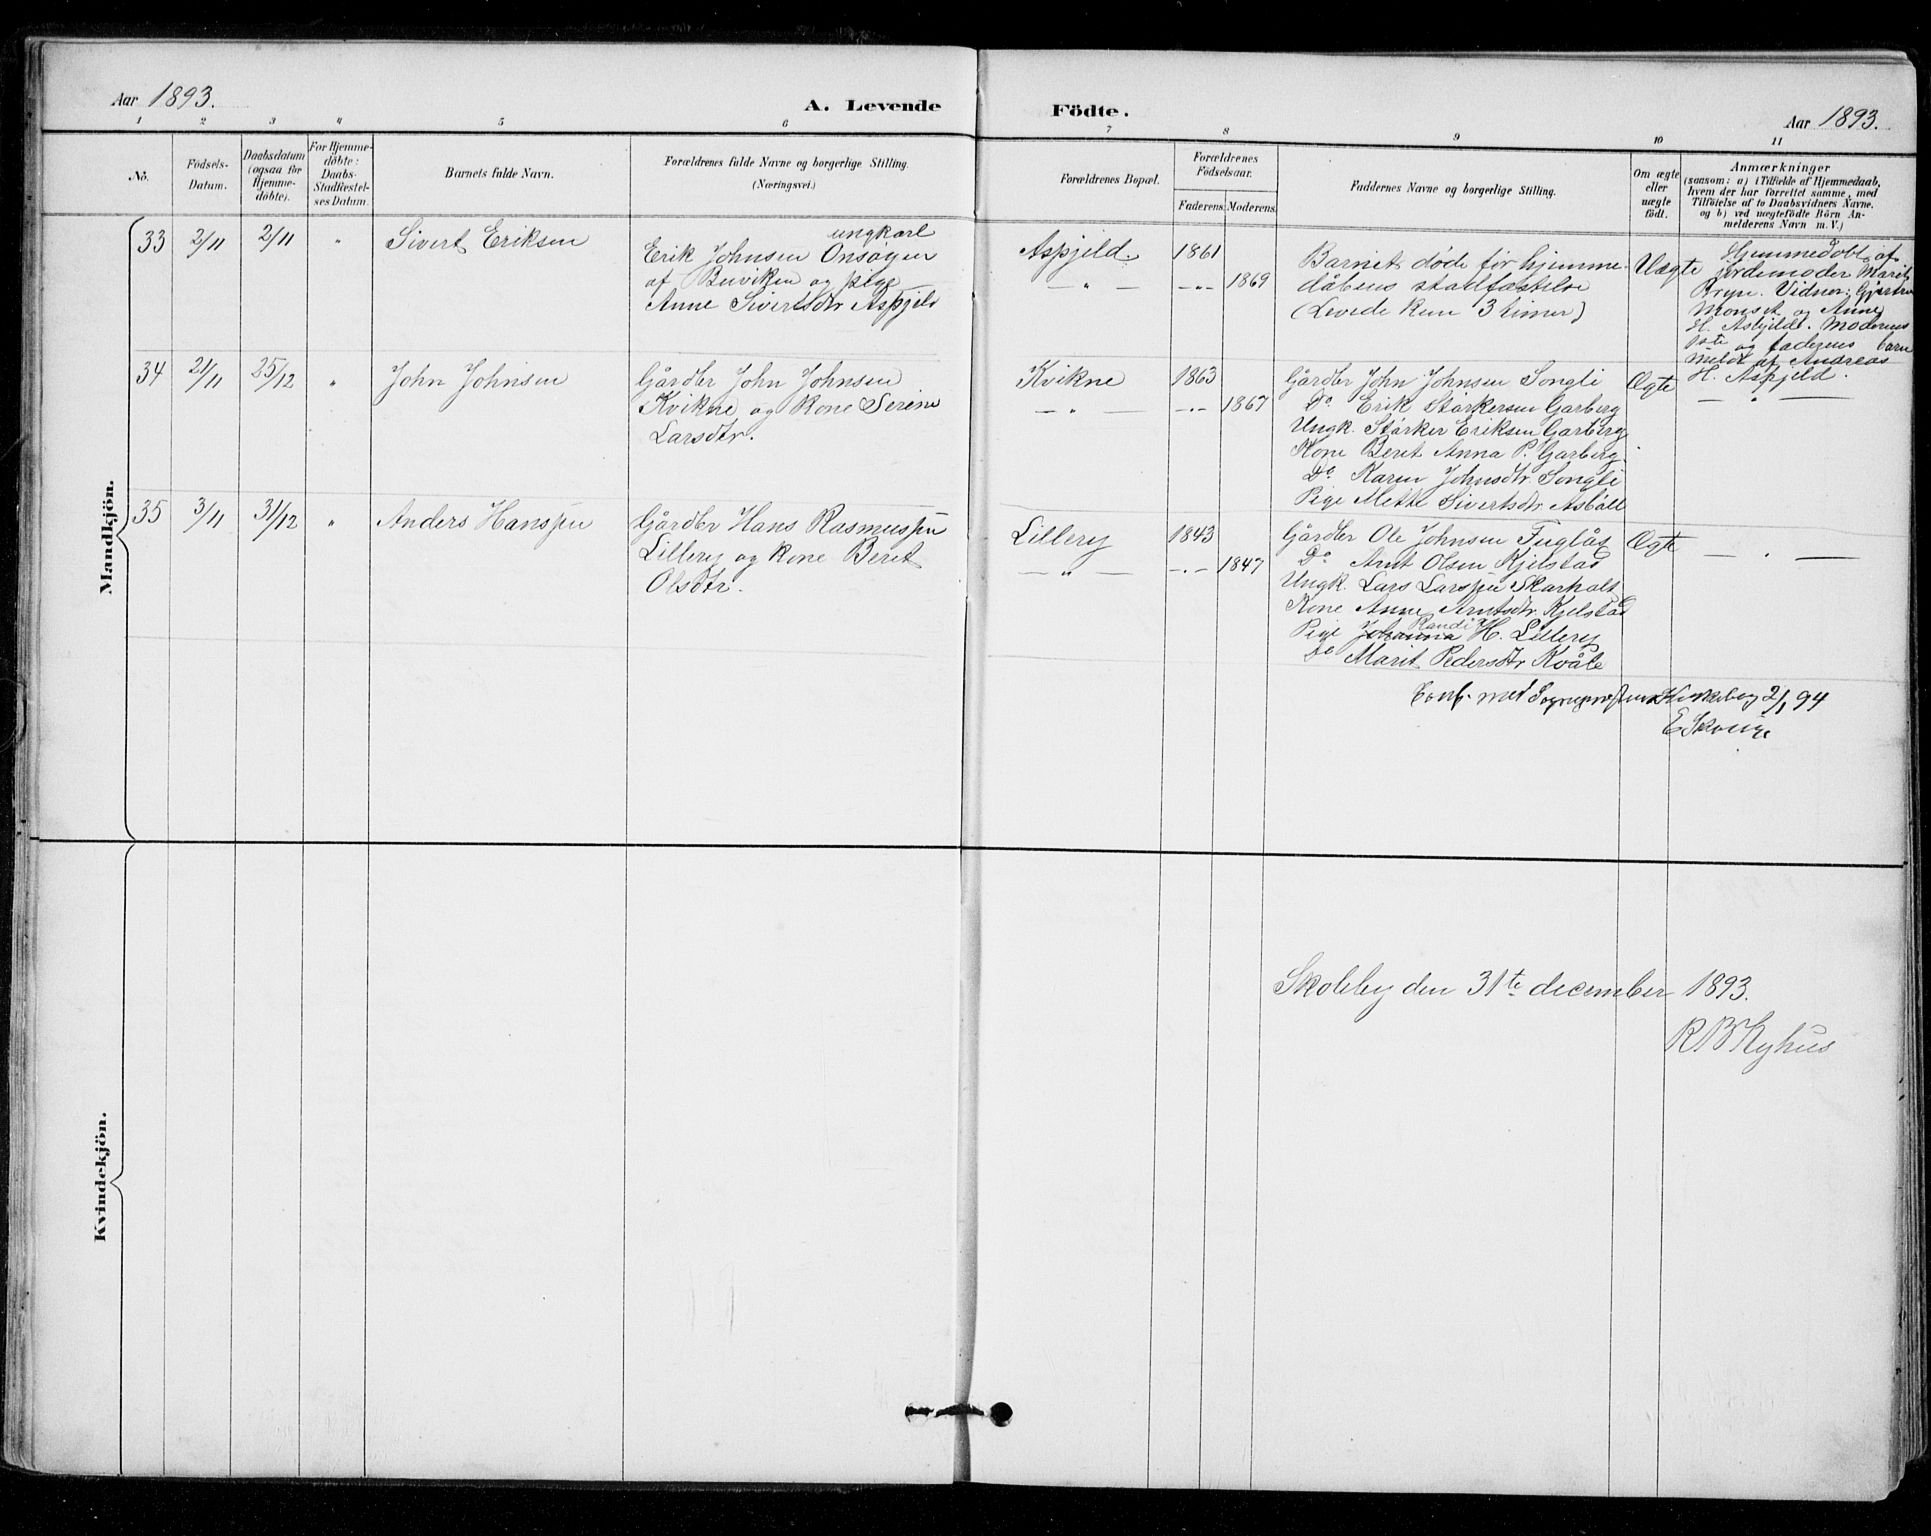 Aar 1893.
A. Levende
Födte.
Aar 1893.
1 2 3 4 5 6 7 8 9 10 11
No.
Födsels-
Datum.
Daabsdatum
(ogsaa for
Hjemme-
döbte).
For Hjemme-
döbte:
Daabs-
Stadfæstel-
ses Datum.
Barnets fulde Navn.
Forældrenes fulde Navne og borgerlige Stilling.
(Næringsvei.)
Forældrenes Bopæl.
Forældrenes
Födselsaar.
Faderens.
Moderens.
Faddernes Navne og borgerlige Stilling.
Om ægte
eller
uægte
födt.
Anmærkninger
(saasom: a) i Tilfælde af Hjemmedaab,
hvem der har forrettet samme, med
Tilföielse af to Daabsvidners Navne,
og b) ved uægtefödte Börn An-
melderens Navn m. V.)
Mandkjön.
33
2/11
2/11
"
Sivert Eriksen
ungkarl
Erik Johnsen Onsøyen
af Buviken og pige
Anne Sivertsdtr Aspjeld
Aspjeld.
— " —
1861
—"— 1869
Barnet døde før hjemme-
dåbens stadfæstelse
(Levede kun 3 timer)
Uægte
Hjemmedøbt af
jordemoder Marit
Bryn. Vidner:
Monset og Anne
H. Aspjeld. Moderens
og faderens barn
Meldt af Andreas
H. Aspjeld.
34
21/11
25/12
"
John Johnsen
Gårdbr John Johnsen
Kvikne og kone Serine
Larsdtr.
Kvikne
— " —
1863
—"— 1867
Gårdbr John Johnsen Songli
Do Erik Størkersen Garberg
Ungk. Størker Eriksen Garberg
Kone Beret Anna P. Garberg.
Do Karen Johnsdtr Songli
Pige Mette Sivertsdtr Asbøll
Ægte
— " —
35
3/11
31/12
"
Anders Hanssen
Gårdbr Hans Rasmussen
Lillery og kone Beret
Olsdtr.
Lillery
— " —
1843
—"— 1847
Gårdbr Ole Johnsen Fuglås
Do Arnt Olsen Kjelstad
Ungk. Lars Larssen Skarholt
Kone Anne Arntsdtr. Kjelstad
Randi
Pige Johanna H. Lillery
Do Marit Pedersdtr Kvåle
Ægte
— " —
Conf. med Sogneprestens Kirkebog 2/1 94
E Skouge
Kvindekjön.
Skoleby den 31te december 1893.
R B Ryhus